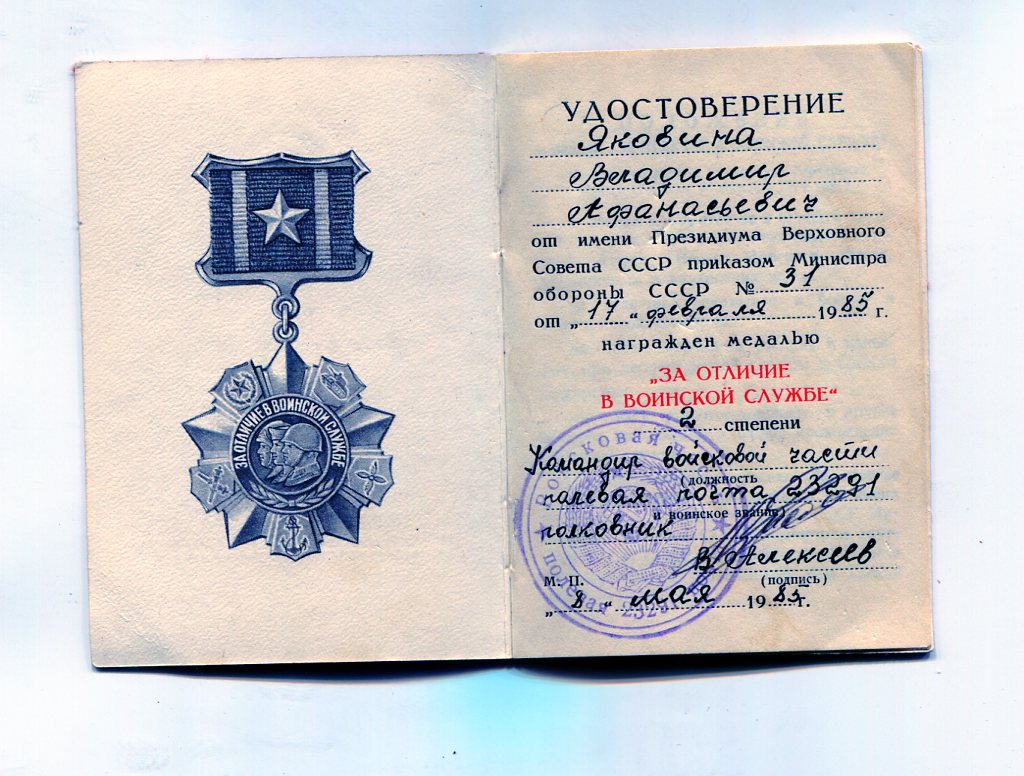 ЗА ОТЛИЧИЕ В ВОИНСКОЙ СЛУЖБЕ
УДОСТОВЕРЕНИЕ
Яковина
Владимир
Афанасьевич
от имени Президиума Верховного
Совета СССР приказом Министра
обороны СССР № 31
от „17“ февраля 1985 г.
награжден медалью
„ЗА ОТЛИЧИЕ
В ВОИНСКОЙ СЛУЖБЕ“
2 степени
Командир войсковой части
(должность
полевая почта 23291
и воинское звание)
полковник
В Алексеев
М. П.
(подпись)
„8“ мая 1985 г.
войсковая
полевая